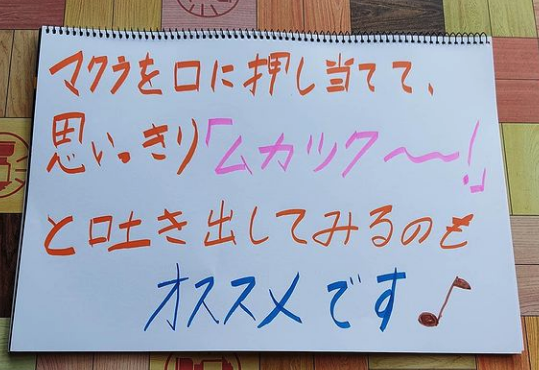 マクラを口に押し当てて、
思いっきり「ムカツク〜!」
と吐き出してみるのも
オススメです♪